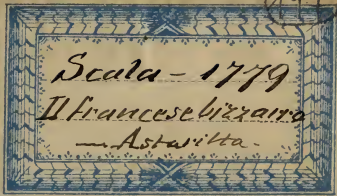 Scala - 1779
Il francese bizzarro
- Astaritta -